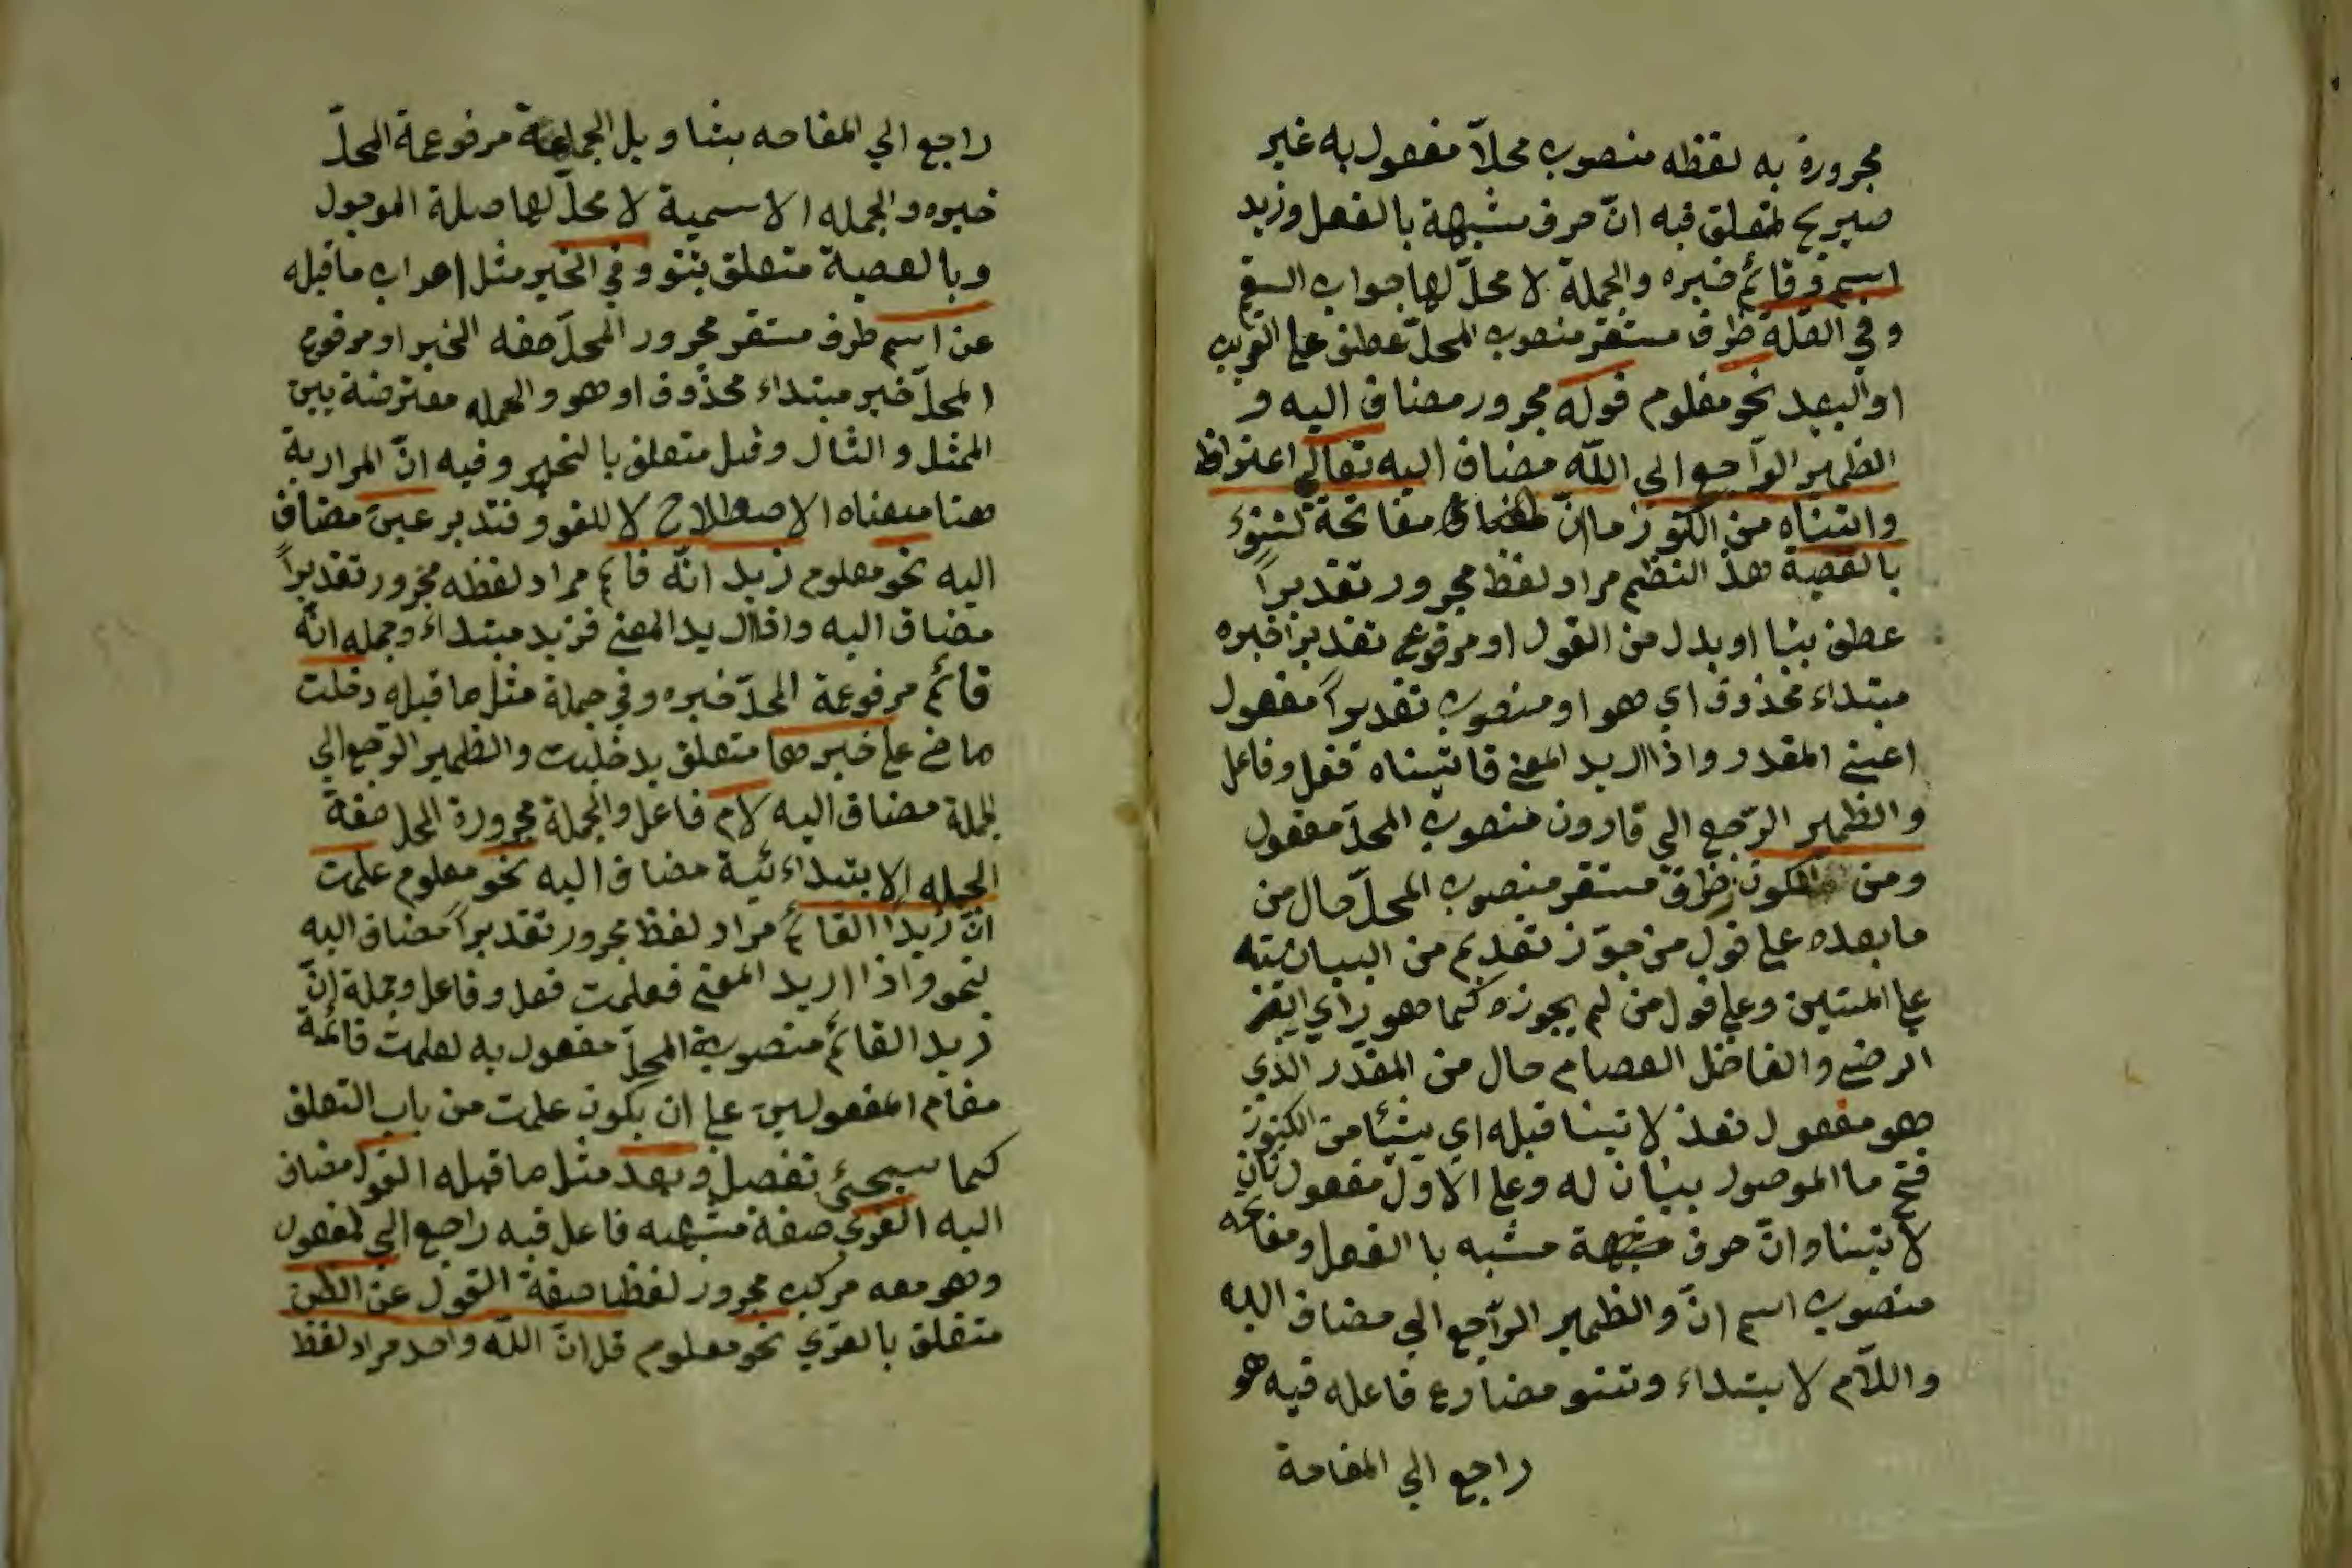 مجرورة به لفظه منصوب محلاّ مفعول به غير
صريح لمتعلق فيه انّ حرف مشبهة بالفعل وزيد
اسم وقائم خبره والجملة لا محلّ لها جواب القسم
وفي الصلة ظرف مستقر منصوب المحلّ عطف علي القريب
او البعيد نحو معلوم قوله مجرور مضاف اليه و
الظمير الراجع الي اللّه مضاف اليه تعالي اعتراظ
واتيناه من الكنوز ما انّ مفاتحة لتنؤ
بالعصبة هذ النظم مراد لفظ مجرور تقديراً
عطف بيا او بدل من القول او مرفوع تقديراً خبره
مبتداء محذوف اي هو او منصوب تقديراً مفعول
اعني المقدر واذا اريد المعني فاتيناه ففل وفاعل
والظمير الرّجع الي قارون منصوب المحلّ مفعول
ومن الكون ظرف مستقر منصوب المحلّ حال من
ما بعده علي قول من جوّز تقديم من البيانيته
علي المبتين وعلي قول من لم يجوزه كما هو رأي
الرضي والفاضل العصام حال من المقدّر الذي
هو مفعول لاتينا قبله اي شيئا من الكنوز
فتح ما الموصول بيان له وعلي الاول مفعول ثان
لاتينا وانّ حرف مشبه با الفعل ومفاتحه
منصوب اسم انّ والظمير الرّاجع الي مضاف اليه
واللاّم لابتداء وتنو مضارع فاعله فيه هو
راجع الي المفاحة
راجع الي المفاحه بتاويل الجماعة مرفوعة المحلّ
خبره والجمله الاسمية لا محلّ لها صلة الموصول
وبالعصبة متعلق بتنو وفي الخبر مثل اعراب ما قبله
عن اسم ظرف مستقر مجرور المحلّ صفه الخبر او مرفوع
المحلّ خبر مبتداء محذوف او هو والجمله معترضة بين
الممثل والمثال وقيل متعلق بالخبر وفيه انّ المراد به
هنا معناه الاصطلاح لا للغو وفتدبر عين مضاف
اليه نحو معلوم زيد انّه قائم مراد لفظه مجرور تقديراً
مضاف اليه واذا اريد المعني فزيد مبتداء وجمله انّه
قائم مرفوعة المحلّ خبره وفي جملة مثل ما قبله دخلت
ماض علي خبرها متعلق بدخلت والظمير الرّجع الي
لجملة مضاف اليه لام فاعل والجملة مجرورة المحل صفة
الجمله الابتداءئية مضاف اليه نحو معلوم علمت
انّ زيدا القائم مراد لفظ مجرور تقديراً مضاف اليه
لنحو واذا اريد المعني فعلمت فعل وفاعل وجملة انّ
زيد القائم منصوبة المحلّ مفعول به لعلمت قائمة
مقام المفعولين علي ان يكون علمت من باب التعلق
كما سيجئ تفصل وبعد مثل ما قبله القول مضاف
اليه القوي صفة مشبهه فاعل فيه راجع الي لمفعول
وهو معه مركب مجرور لفظا صفة القول عن الظن
متعلق بالعري نحو معلوم قل انّ اللّه واحد مراد لفظ